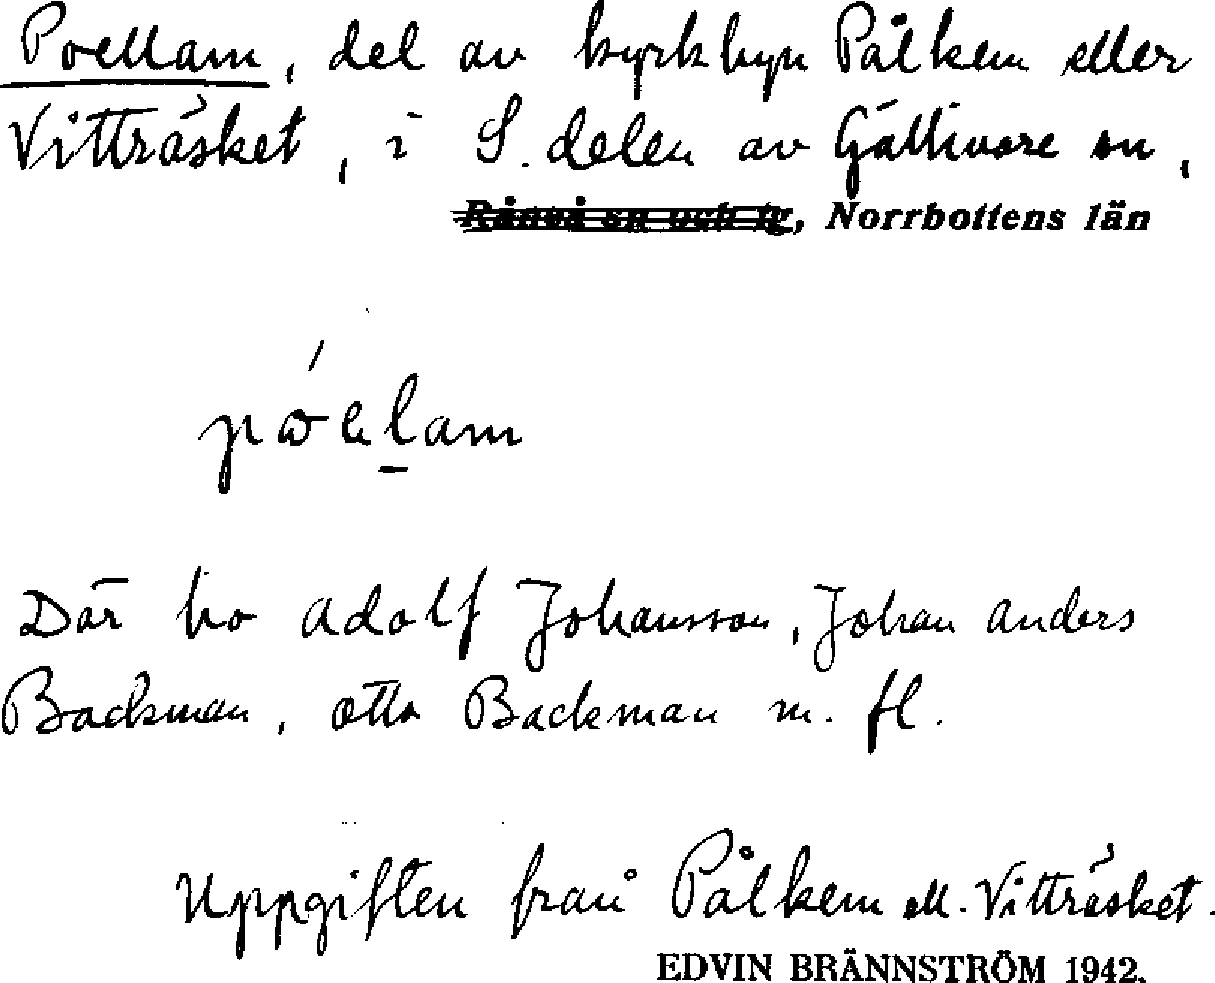 Poellam, del av kyrkbyn Pålkem eller
Vitträsket, i S. delen av Gällivare sn,
Råneå sn och tg, Norrbottens län
Där bo Adolf Johansson, Johan Anders
Backman, Otto Backman m. fl.
Uppgiften från Pålkem ell. Vitträsket.
EDVIN BRÄNNSTRÖM 1942.